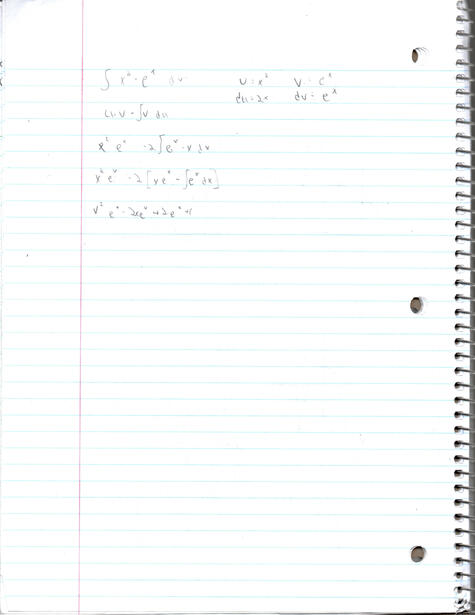 ∫ x² · eˣ dx   u = x²   v = eˣ
du = 2x   dv = eˣ
u·v - ∫v du
x² eˣ - 2∫eˣ · x dx
x² eˣ - 2[xeˣ - ∫eˣ dx]
x² eˣ - 2xeˣ + 2eˣ + c